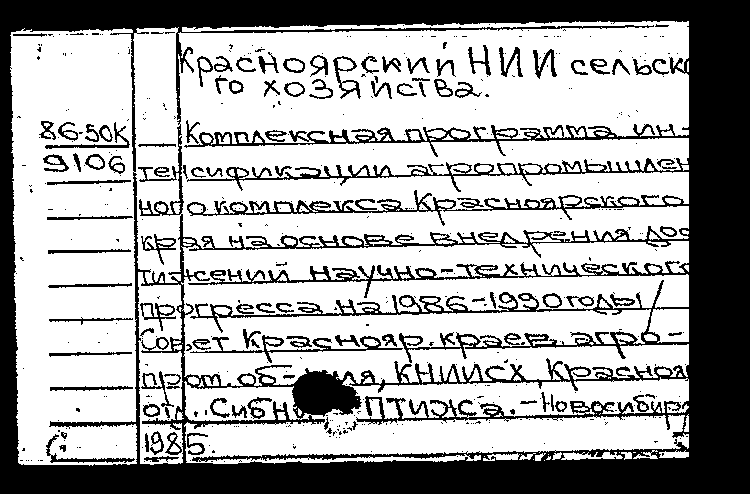 Красноярский НИИ сельско
го хозяйства.
86-50К Комплексная программа ин-
9106 тенсификации агропромышлен
ного комплекса Красноярского
края на основе внедрения дос
тижений научно-технического
прогресса на 1986-1990 годы /
Совет Краснояр. краев. агро-
пром. КНИИСХ, Краснояр
отд. ПТИЖа. - Новосибирс
1985.